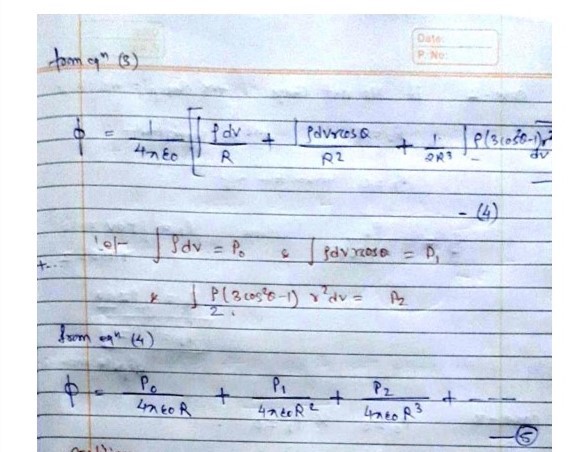 Date:
P. No:
from eqⁿ (3)
ϕ = 1/4πε0 [ ∫ρdv/R + ∫ρdvrcosθ/R2 + 1/2R3 ∫ρ(3cos²θ-1)r² dv
- (4)
let ∫ρdv = P0 & ∫ρdvrcosθ = P1
& ∫ρ/2 (3cos²θ-1) r²dv = P2
from eqⁿ (4)
ϕ = P0/4πε0R + P1/4πε0R2 + P2/4πε0R3 + - - -
- (5)